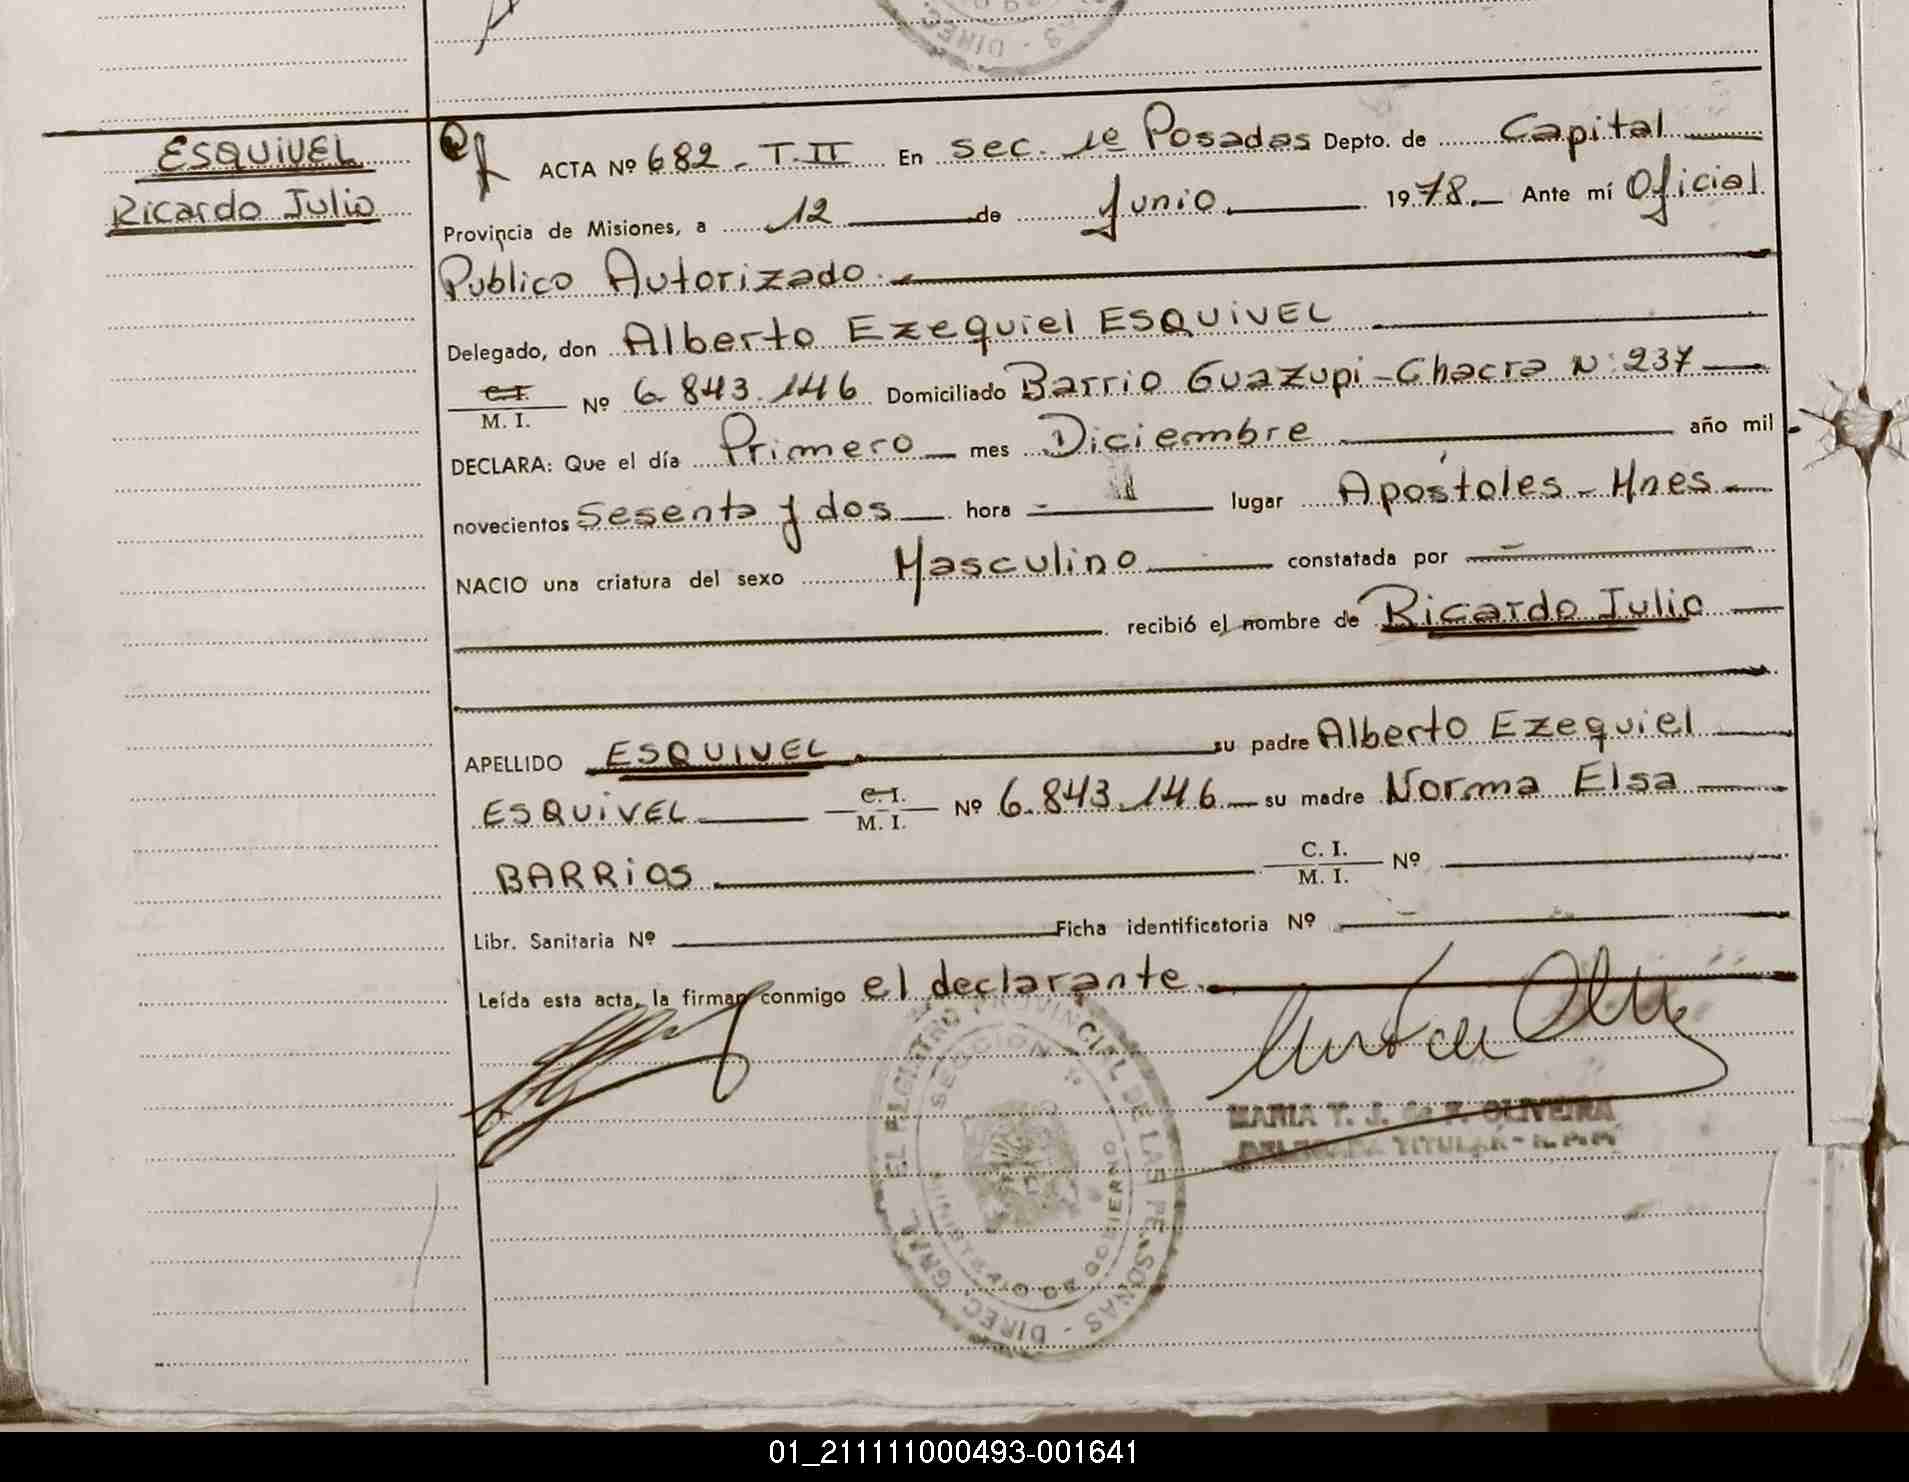 ESQUIVEL
Ricardo Julio
ACTA Nº 682 - T. II En Sec. 1º Posadas Depto. de Capital
Provincia de Misiones, a 12 de Junio 1978. Ante mí Oficial
Publico Autorizado.
Delegado, don Alberto Ezequiel ESQUIVEL
C.I. / M. I. Nº 6.843.146 Domiciliado Barrio Guazupi - Chacra Nº 237
DECLARA: Que el día Primero mes Diciembre año mil
novecientos Sesenta y dos hora lugar Apóstoles - Mnes
NACIO una criatura del sexo Masculino constatada por
recibió el nombre de Ricardo Julio
APELLIDO ESQUIVEL su padre Alberto Ezequiel
ESQUIVEL C.I. / M. I. Nº 6.843.146 su madre Norma Elsa
BARRIOS C. I. / M. I. Nº
Libr. Sanitaria Nº Ficha identificatoria Nº
Leída esta acta, la firman conmigo el declarante.
PROVINCIAL DE LAS PERSONAS - DIREC. GRAL.
SECCION 1º
MINISTERIO DE GOBIERNO
MARIA T. J. de F. OLIVEIRA
DELEGADA TITULAR - R. P. P.
01_211111000493-001641